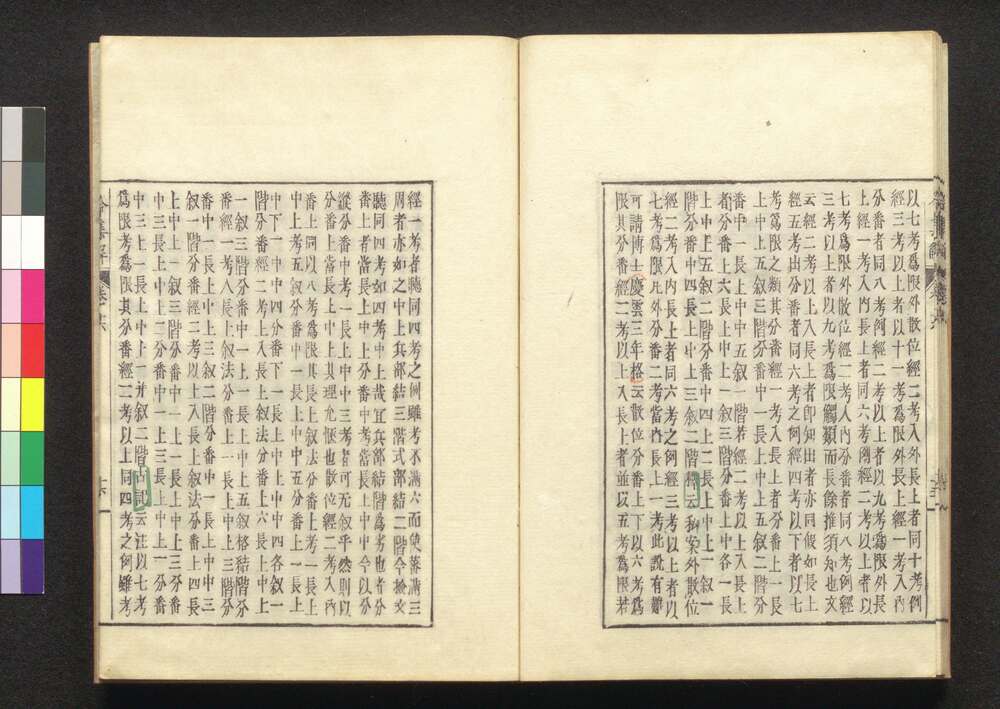 以七考爲限外散位經二考入外長上者同十考例
經三考以上者以十一考爲限外長上經一考入內
分番者同八考例經二考以上者以九考爲限外長
上經一考入內長上者同六考例經二考以上者以
七考爲限外散位經一考人內分番者同八考例經
三考以上者以九考爲限觸類而長餘推須知也文
云經二考以上入長上者即知出者亦同假如長上
經五考出分番者同六考之例經四考以下者以七
考爲限之類其分番經一考入長上者分番上一長
上中上五叙三階分番中一長上中上五叙二階分
番中一長上中中五叙一階若經二考以上入長上
者分番上六長上中上一叙三階分番上中四各一長
上中上五叙二階分番中四上二長上中上一叙一
階分番中四長上中上三叙二階
經二考入內長上者同六考之例經三考以上者以
七考爲限凡外分番二考當內長上一考此說有難
可請博士慶雲三年格云散位分番上下以六考爲
限其分番經二考以上入長上者並以五考爲限若
經一考者聽同四考之例雖考不滿六而使蕃滿三
周者亦如之中上兵部結三階式部結二階今檢文
聽同四考如四考中上哉宜兵部結階爲劣也者分
番上者當長上中上分番中考當長上中中今以分
縱分番中考一長上中中三考者可无叙乎然則以
分番上當長上中上其理尤愜也散位經二考入內
番上同以八考爲限其長上叙法分番上考一長上
中上考五叙分番中一長上中中五分番上一長上
中下一中中四分番下一長上中上中中四各叙一
階分番經二考上入長上叙法分番上六長上中上
一叙三階分番中一上一長上中上五叙格結階分
番經一考入長上叙法分番上一長上中上三階分
番中一長上中上三叙二階分番中一長上中中三
叙一階分番經二考以上入長上叙法分番上四長
上中上一叙三階分番中一上一長上中上三分番
中三長上中上二分番中一上三長上中上一分番
中三上一長上中上一并叙二階古記云注以七考
爲限考爲限其分番經二考以上同四考之例雖考